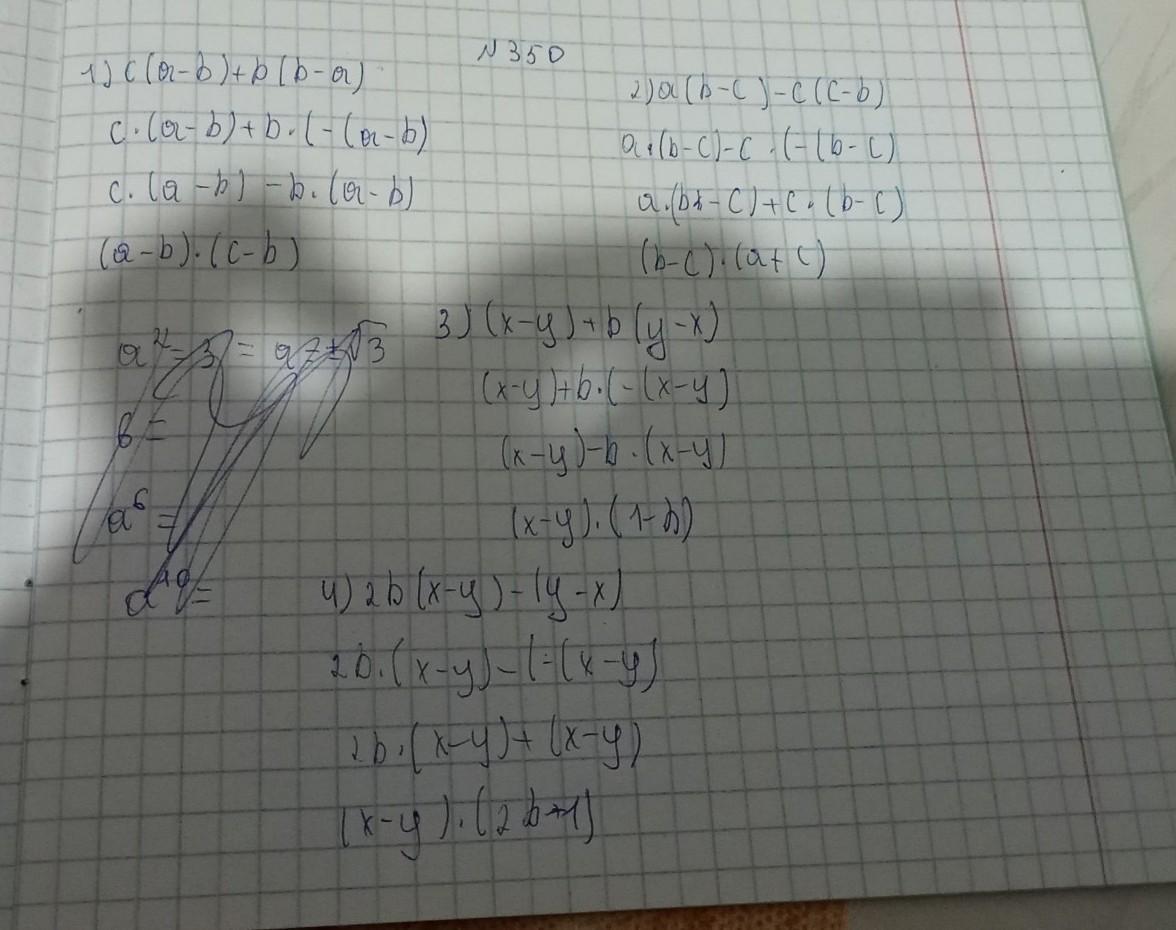 N 350
1) c(a-b)+b(b-a)
c·(a-b)+b·(-(a-b)
c·(a-b)-b·(a-b)
(a-b)·(c-b)
2) a(b-c)-c(c-b)
a·(b-c)-c·(-(b-c)
a·(b-c)+c·(b-c)
(b-c)·(a+c)
3) (x-y)+b(y-x)
(x-y)+b·(-(x-y)
(x-y)-b·(x-y)
(x-y)·(1-b)
4) 2b(x-y)-(y-x)
2b·(x-y)-(-(x-y)
2b·(x-y)+(x-y)
(x-y)·(2b+1)